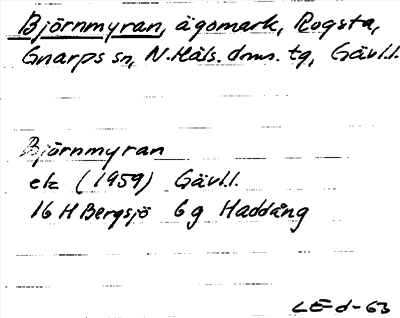 Björnmyran, ägomark, Rogsta,
Gnarps sn, N. Häls. doms. tg, Gävl.l.
Björnmyran
ek (1959) Gävl.l.
16 H Bergsjö 6 g Haddång
LE-d-63